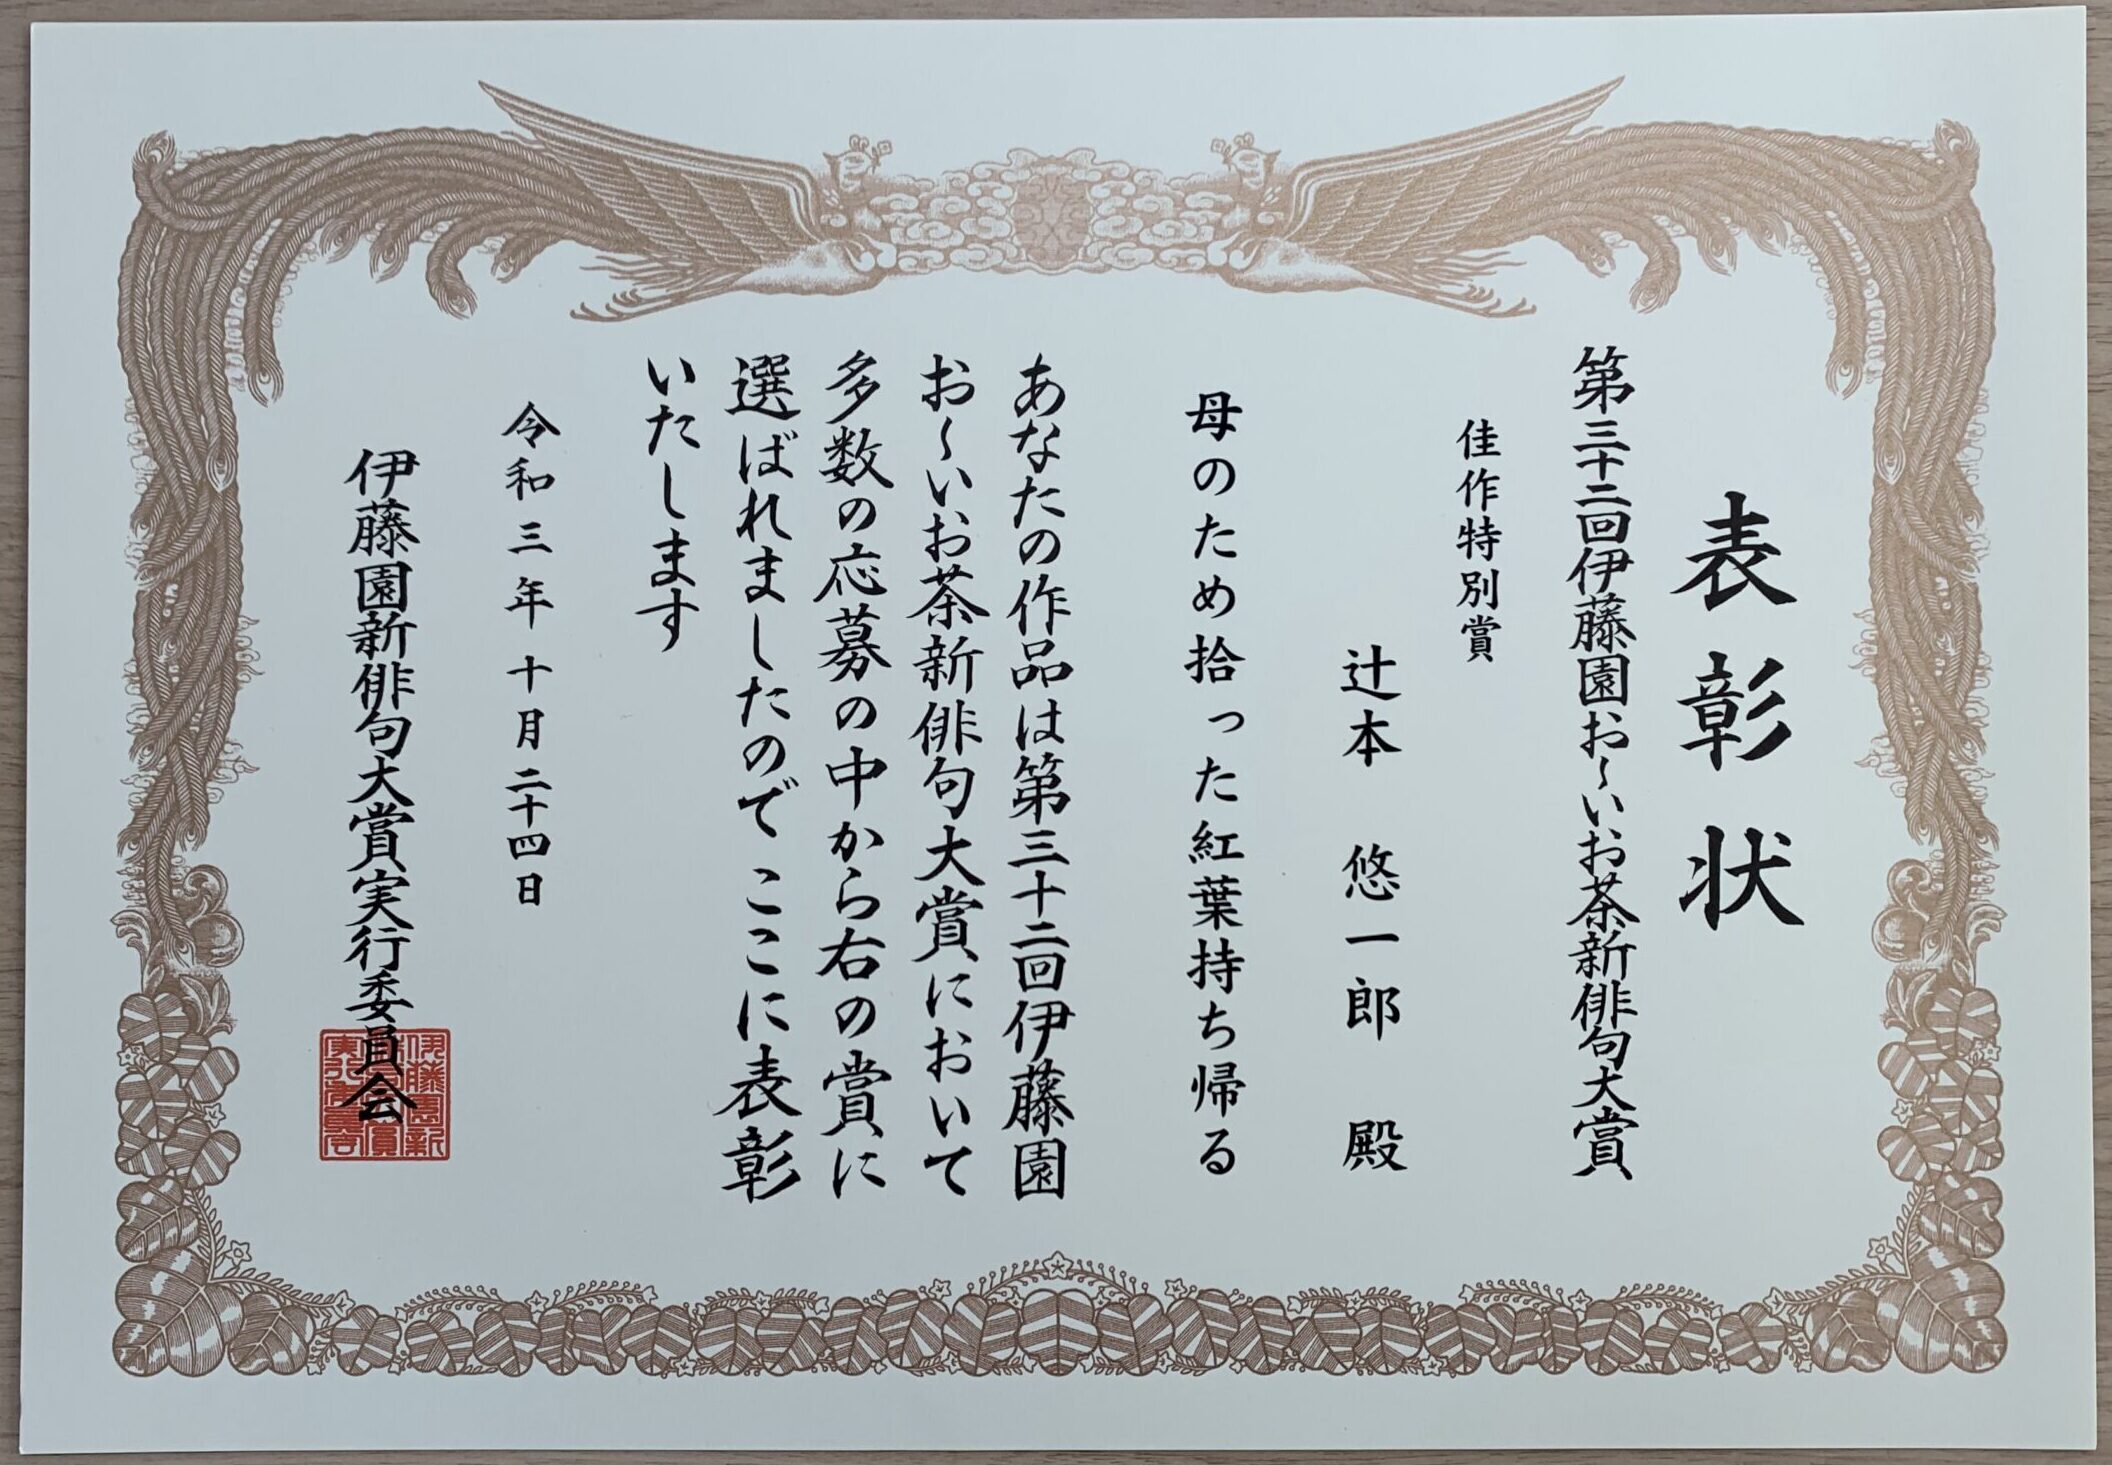 表彰状
第三十二回伊藤園お〜いお茶新俳句大賞
佳作特別賞
辻本 悠一郎 殿
母のため拾った紅葉持ち帰る
あなたの作品は第三十二回伊藤園
お〜いお茶新俳句大賞において
多数の応募の中から右の賞に
選ばれましたのでここに表彰
いたします
令和三年十月二十四日
伊藤園新俳句大賞実行委員会